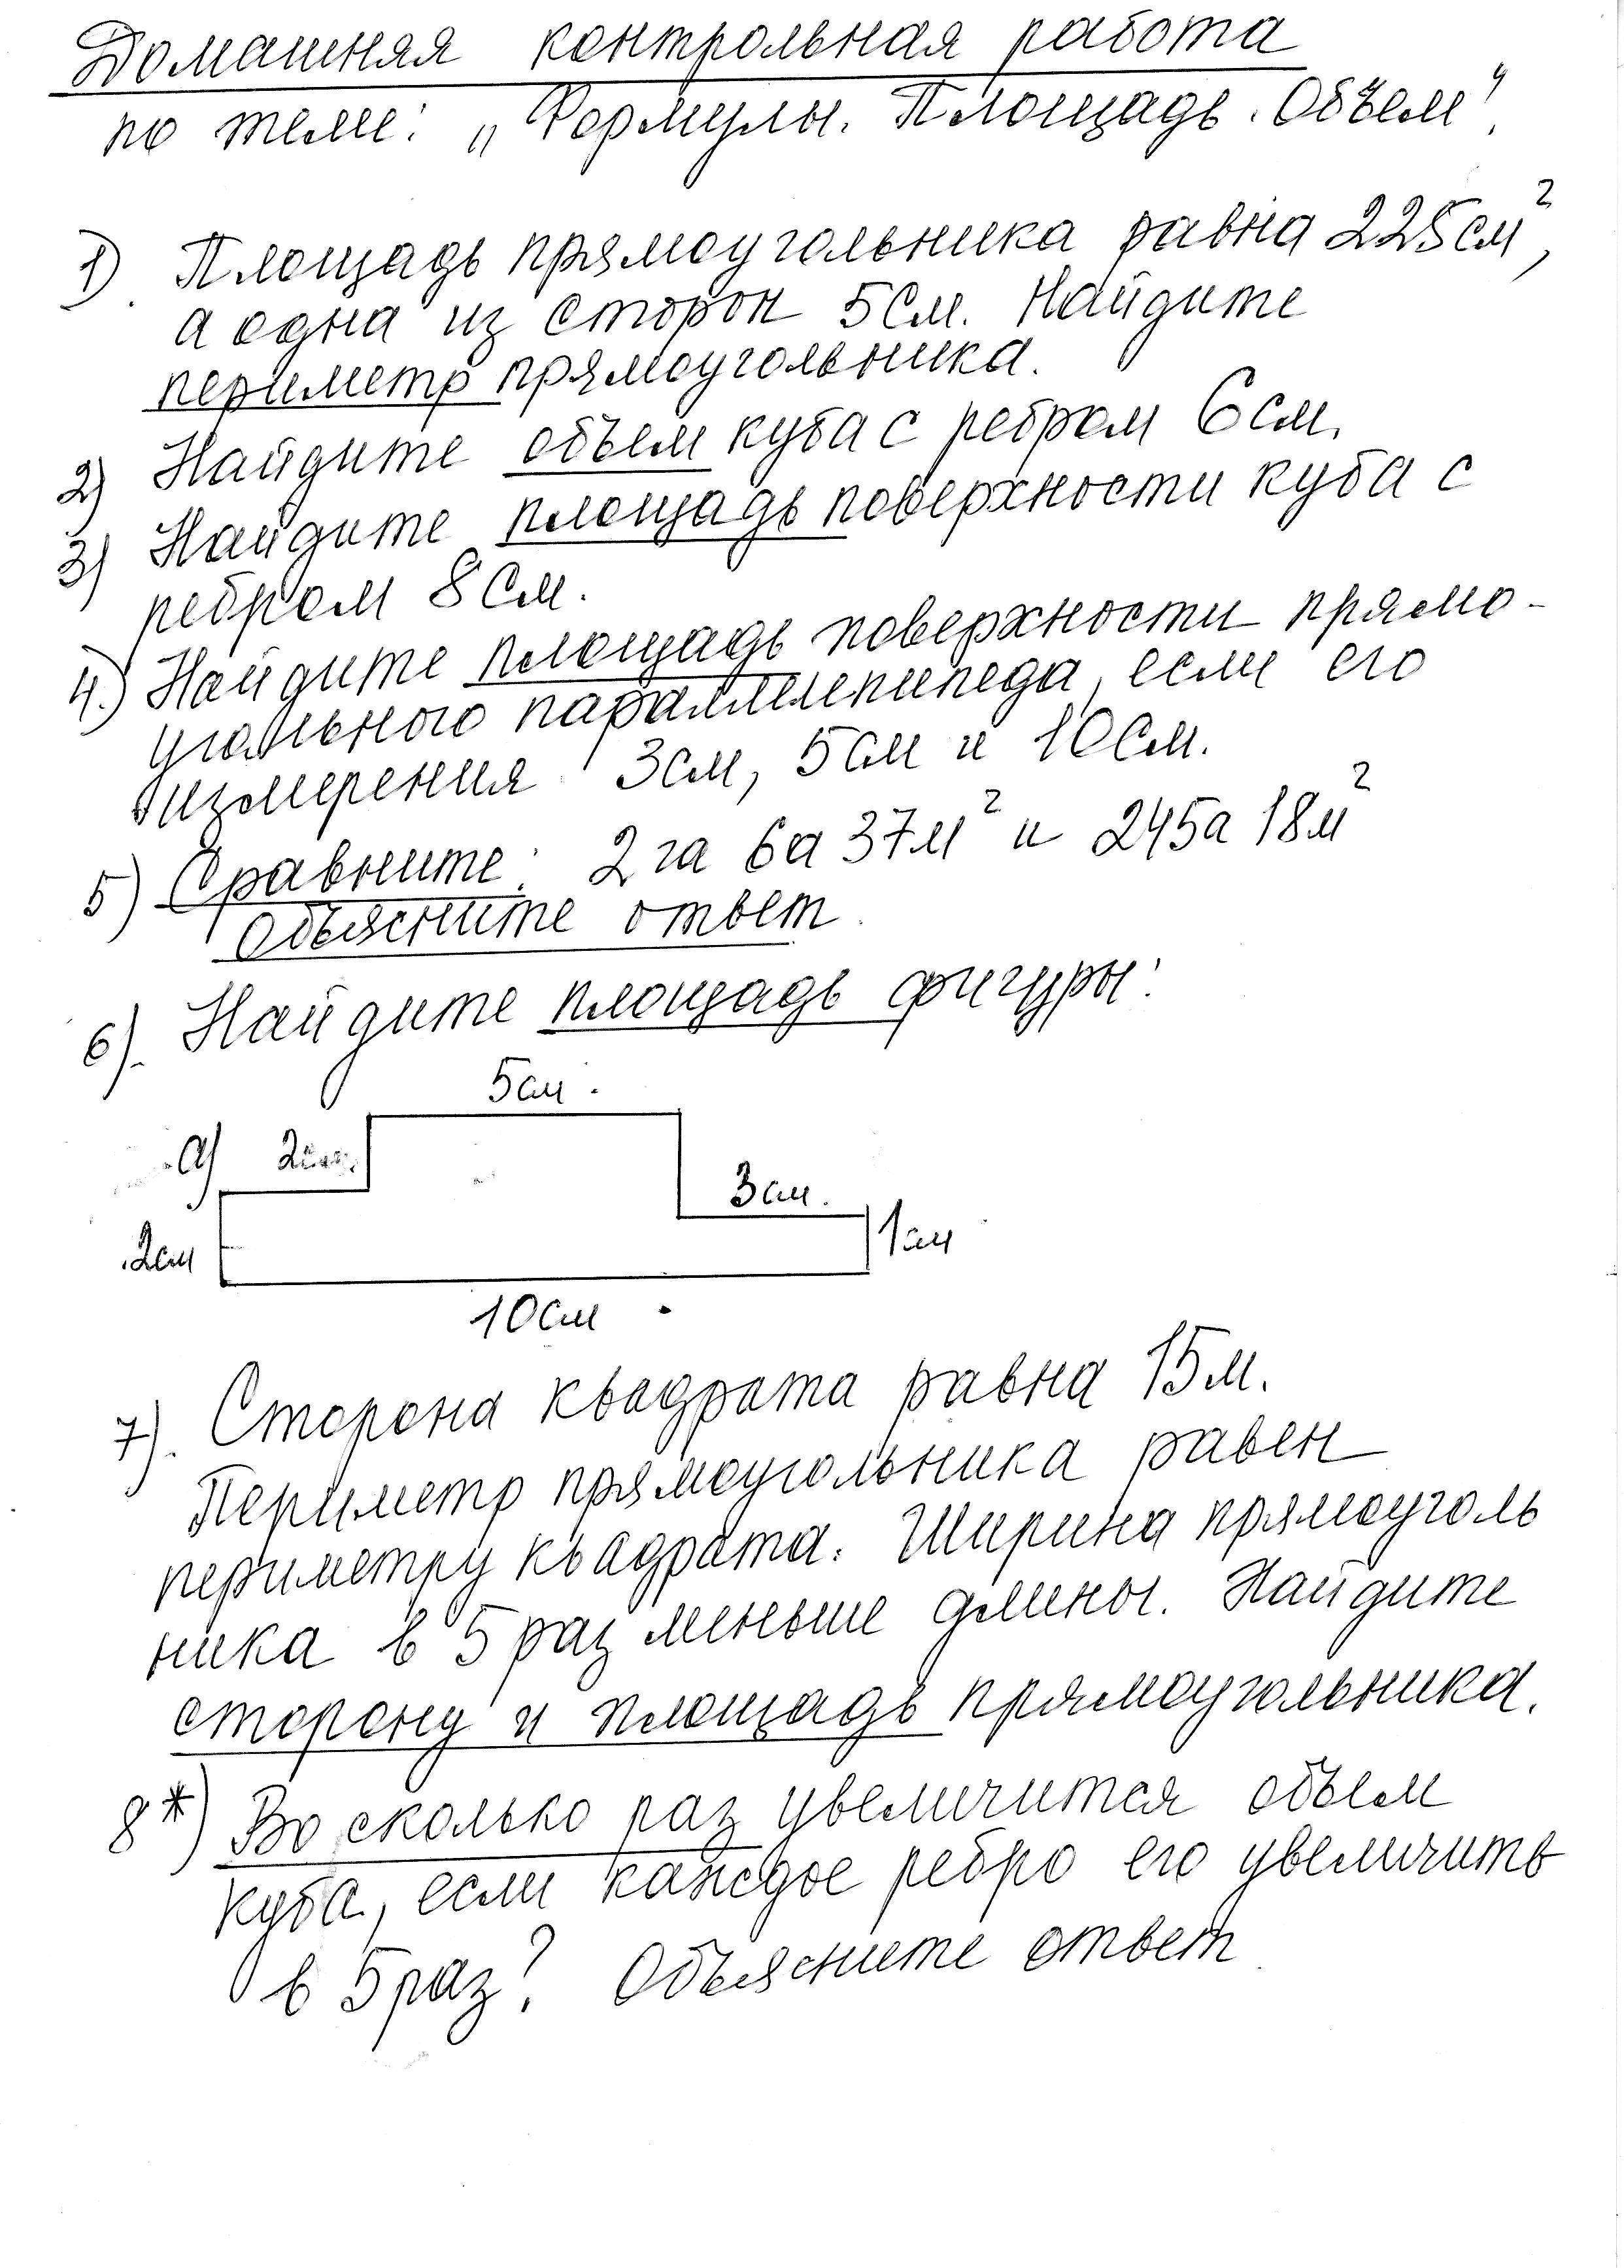 Домашняя контрольная работа
по теме: „Формулы. Площадь. Объем".
1). Площадь прямоугольника равна 225см²,
а одна из сторон 5см. Найдите
периметр прямоугольника.
2) Найдите объем куба с ребром 6см.
3) Найдите площадь поверхности куба с
ребром 8см.
4.) Найдите площадь поверхности прямо-
угольного параллелепипеда, если его
измерения 3см, 5см и 10см.
5) Сравните: 2га 6а 37м² и 245а 18м²
Объясните ответ.
6). Найдите площадь фигуры:
5см.
а) 2см.
3см.
2см
1см
10см
7). Сторона квадрата равна 15м.
Периметр прямоугольника равен
периметру квадрата. Ширина прямоуголь
ника в 5 раз меньше длины. Найдите
сторону и площадь прямоугольника.
8*) Во сколько раз увеличится объем
куба, если каждое ребро его увеличить
в 5 раз? Объясните ответ